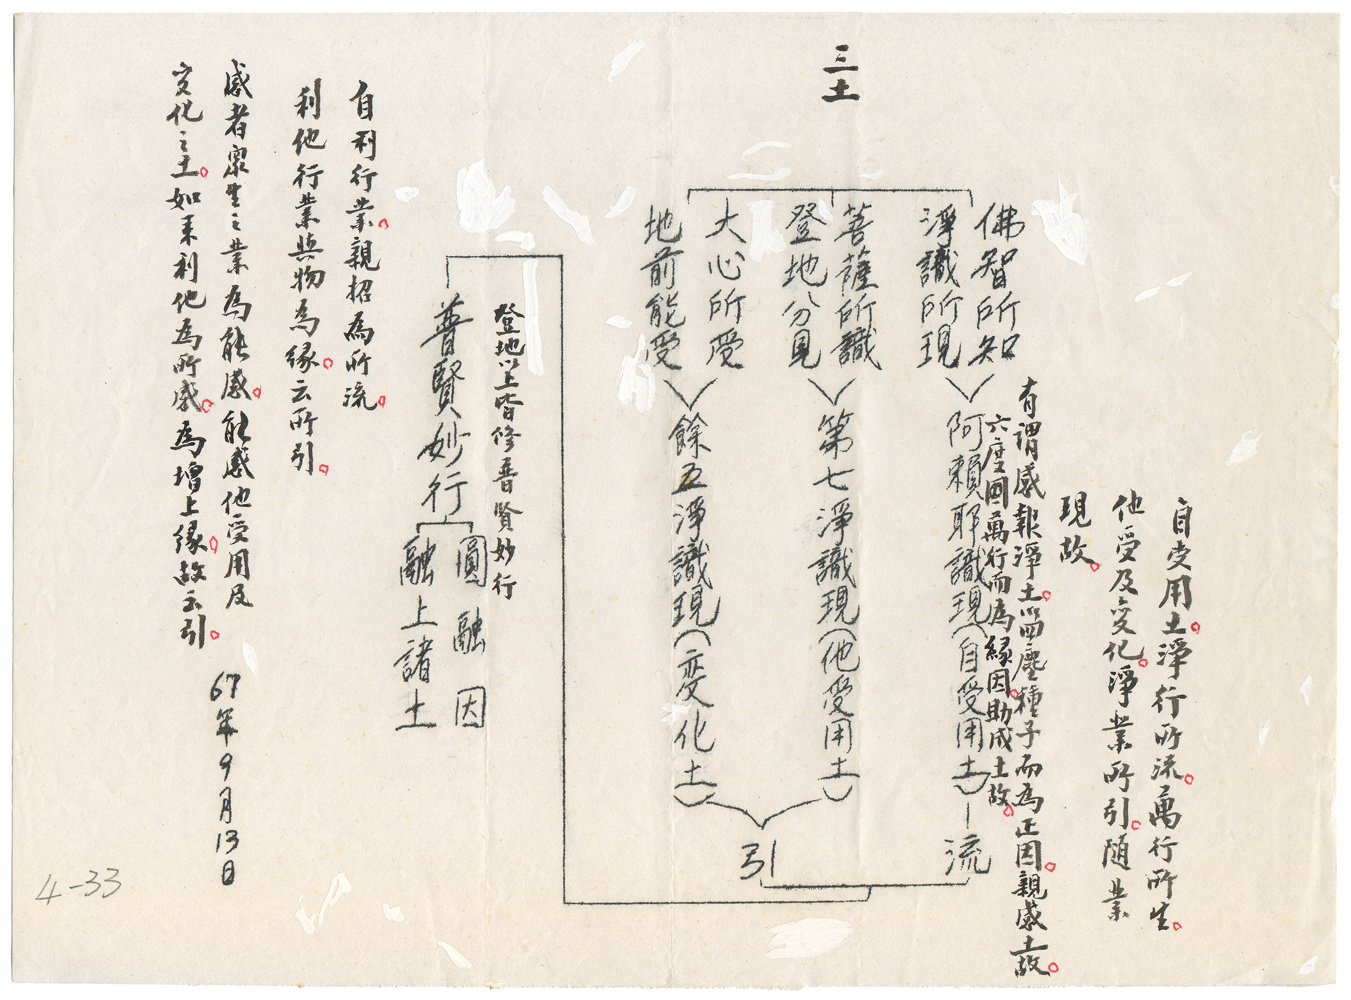 三土
自受用土。淨行所流。萬行所生。
他受及變化。淨業所引。隨業
現故。
有謂感報淨土。以四塵種子而為正因。親感土故。
六度因萬行而為緣因。助成土故。
佛智所知
淨識所現
阿賴耶識現(自受用土)
流
菩薩所識
登地分見
第七淨識現(他受用土)
大心所受
地前能受
餘五淨識現(变化土)
引
登地以上皆修普賢妙行
普賢妙行
圓融因
融上諸土
自利行業。親招為所流。
利他行業與物為緣。云所引。
感者眾生之業為能感。能感他受用及
变化之土。如來利他為所感。為增上緣。故云引。
67年9月13日
4-33